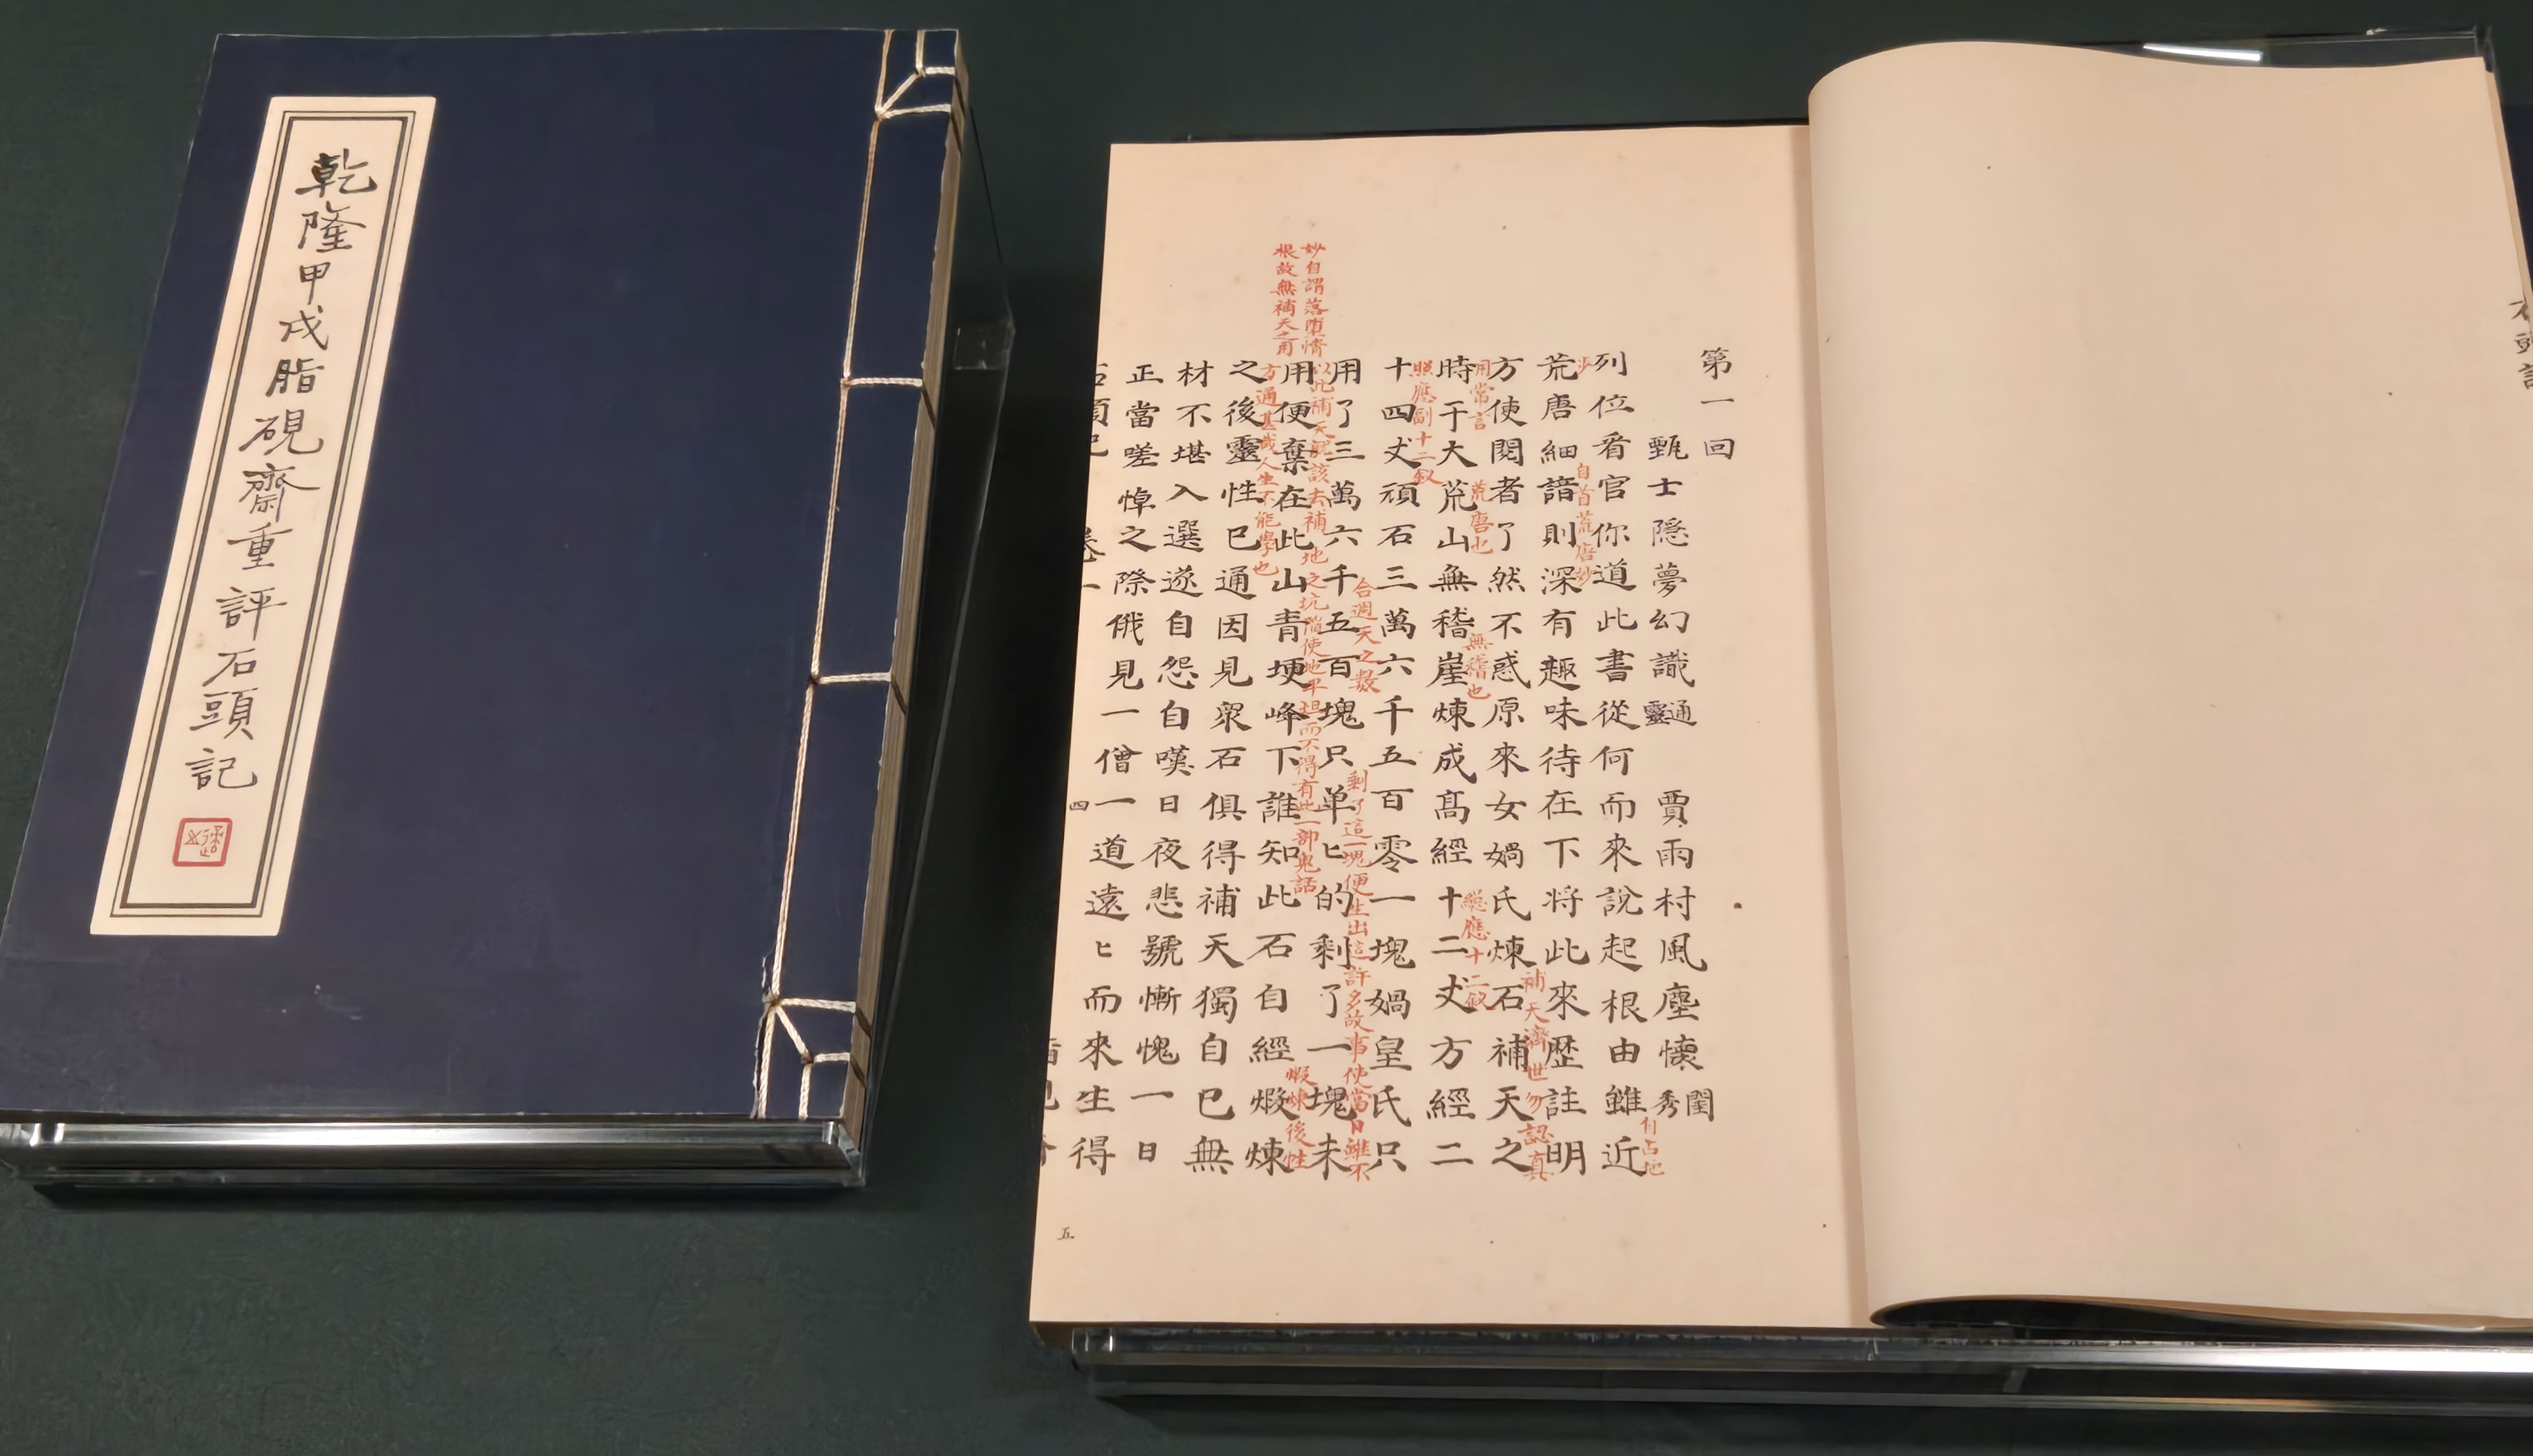 乾隆甲戌脂硯齋重評石頭記
第一回
甄士隱夢幻識通靈　賈雨村風塵懷閨秀
列位看官你道此書從何而來說起根由雖近
自占地
荒唐細諳則深有趣味待在下將此來歷註明
自首荒唐妙
方使閱者了然不惑原來女媧氏煉石補天之
補天濟世勿認真
用常言
時于大荒山無稽崖煉成高經十二丈方經二
荒唐也
無稽也
總應十二釵
照應副十二釵
十四丈頑石三萬六千五百零一塊媧皇氏只
合週天之數
用了三萬六千五百塊只单匕的剩了一塊未
剩了這一塊便生出這許多故事使當日雖不
以此補天就該去補地之坑陷使地平坦而不得有此一部鬼話
用便棄在此山青埂峰下誰知此石自經煅煉
妙自謂落墮情
根故無補天之用
煅煉後性
方通甚哉人生不能學也
之後靈性已通因見衆石俱得補天獨自已無
材不堪入選遂自怨自嘆日夜悲號慚愧一日
正當嗟悼之際俄見一僧一道遠匕而來生得
卷一
四
五